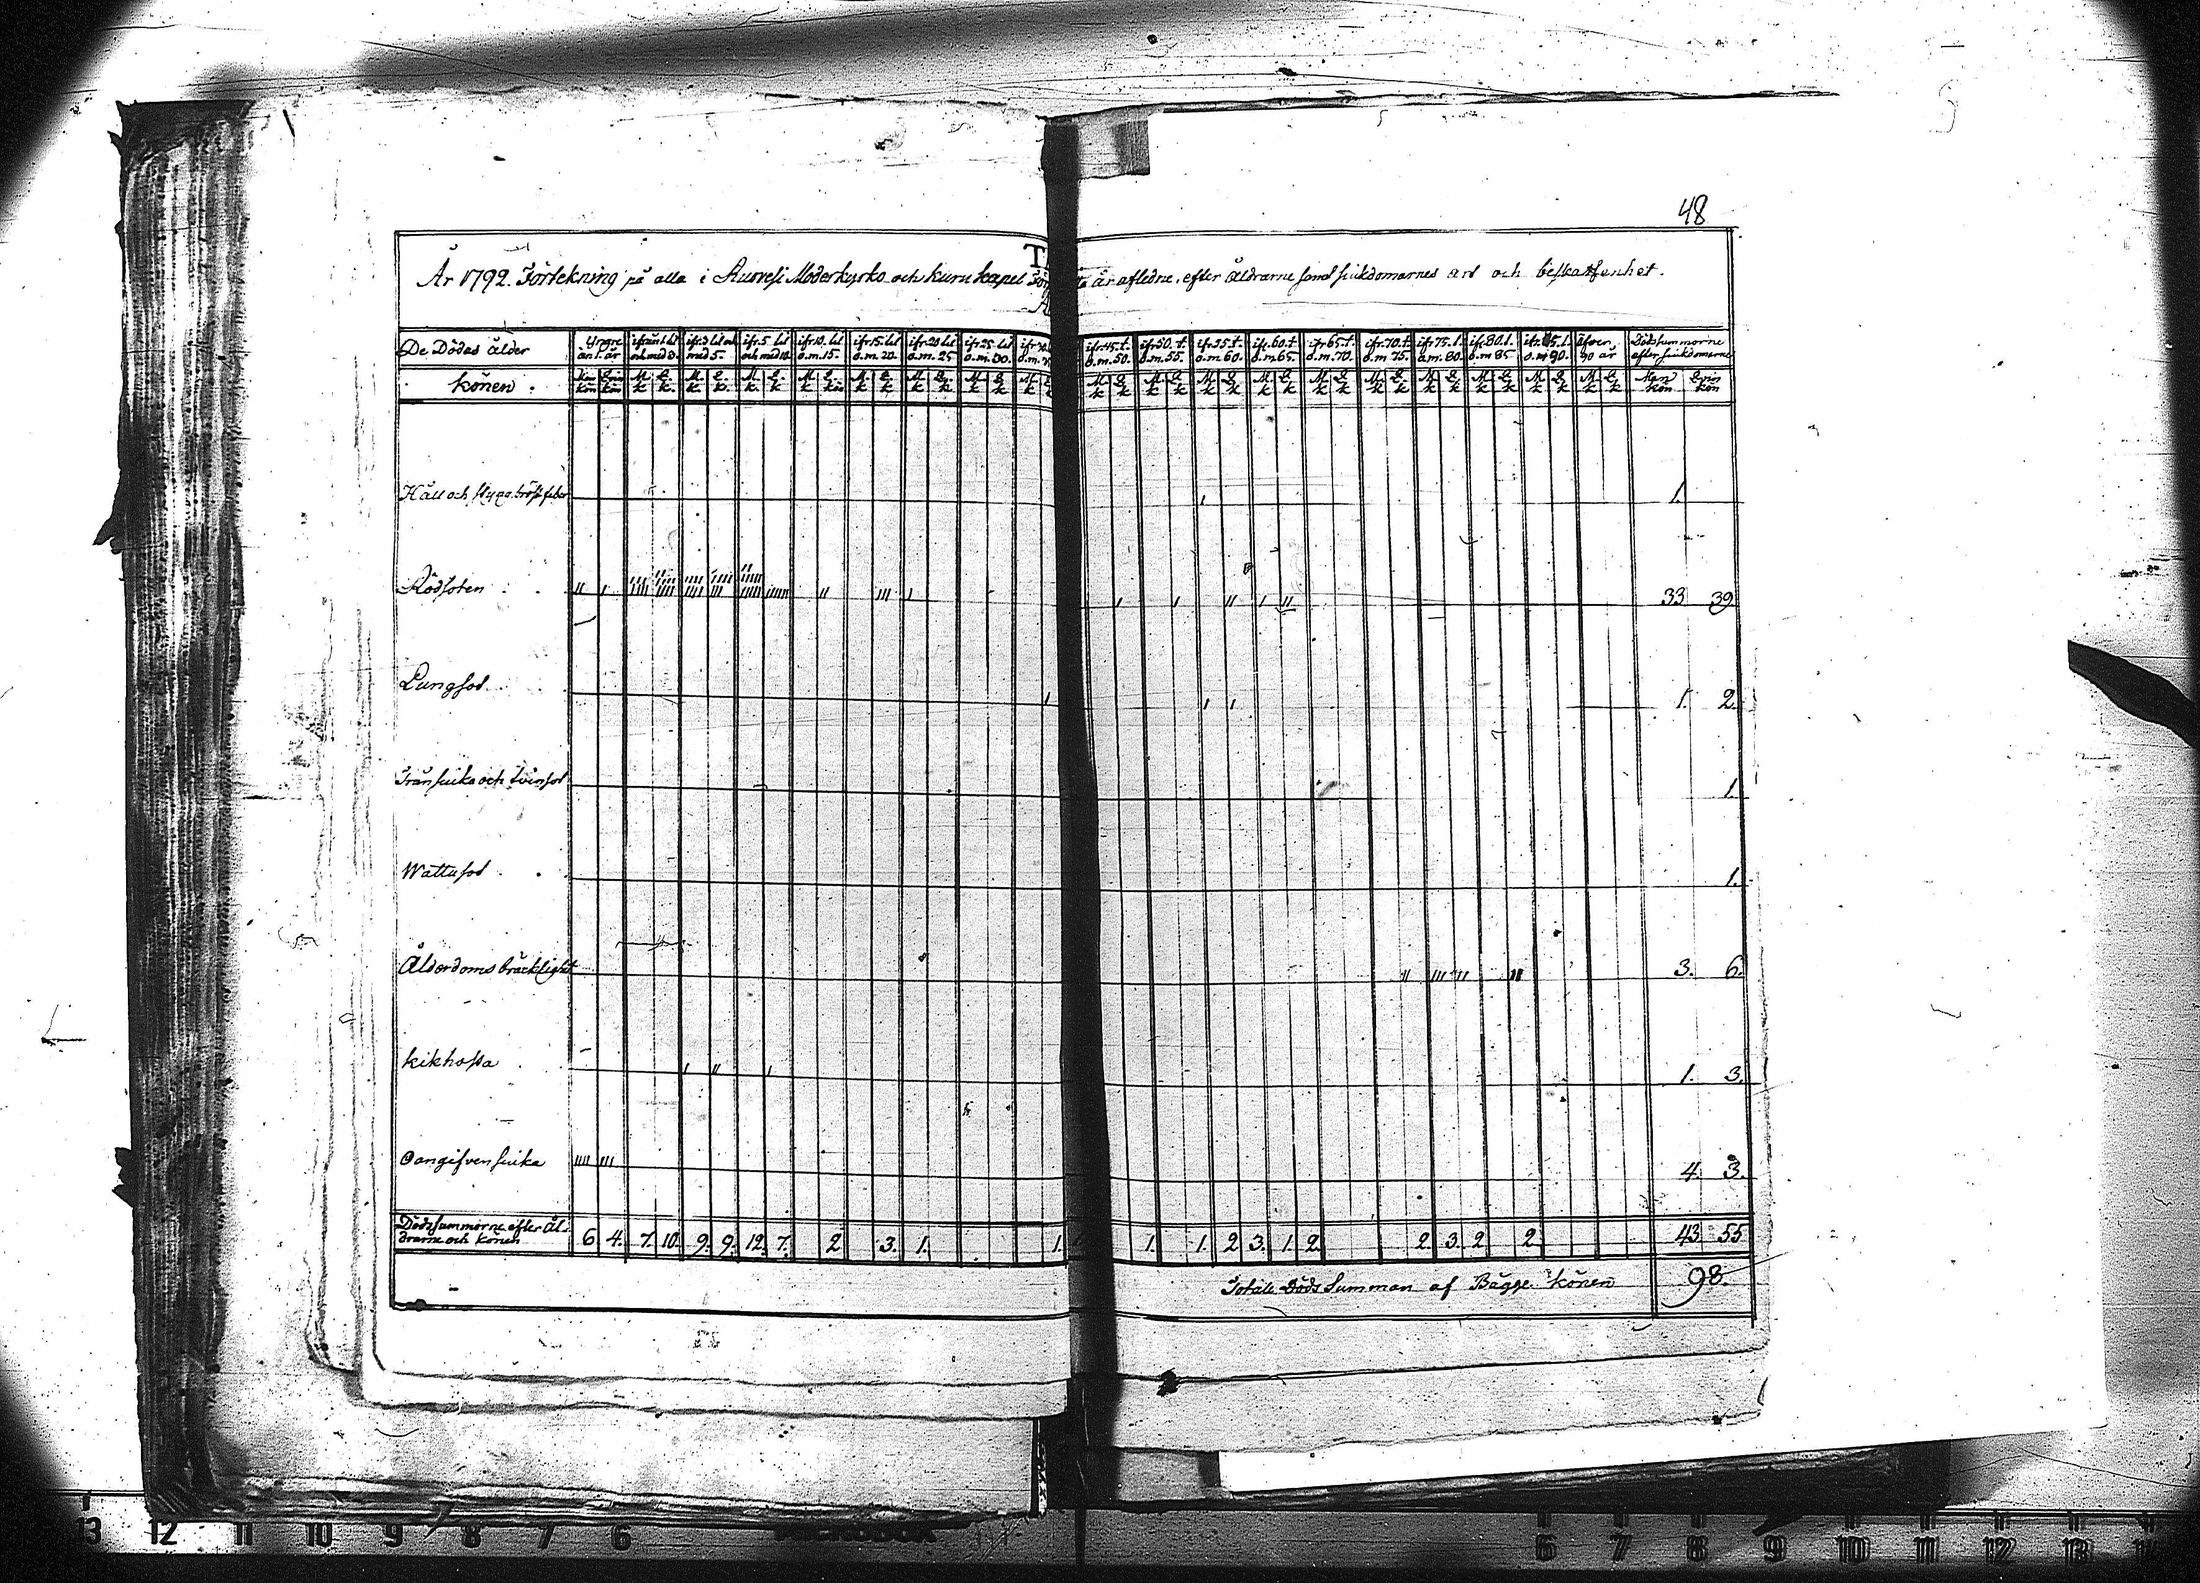 48
År 1792. Förtekning på alla i Moderkyrko och kapel är afledne, efter Åldrarne samt siukdomarnes art och beskaffenhet.
De Dödas ålder Yngre än 1. år ifrån 1 til och med 3. ifr. 3 til och med 5. ifr. 5 til och med 10. ifr. 10. til o.m. 15. ifr. 15 til o.m. 20. ifr. 20 til o.m. 25 ifr. 25 til o.m. 30. ifr. 45. t. o.m. 50. ifr. 50. t. o.m. 55. ifr. 55. t. o.m. 60. ifr. 60. t o.m. 65. ifr 65. t. o.m. 70. ifr. 70. t. o.m. 75. ifr. 75. t. o.m. 80. ifr. 80. t. o.m 85 ifr. 85. t. o.m 90. Äfven 90 år Dödssummorne efter siukdomarne
könen. Man kön Qvin kön
Håll och Stygn bröst feber 1.
Rödsoten 33 39
Lungsot 1. 2.
Trånsiuka och tvinsot 1.
Wattusot 1.
Ålderdoms bräcklighet 3. 6.
kikhosta 1. 3.
Oangifven siuka 4. 3.
Dödssummorne efter Åldrarne och könen 6 4. 7. 10. 9. 9. 12. 7. 2 3. 1. 1. 1. 1. 2 3. 1. 2. 2. 3. 2 2 43 55
Totale Döds Summan af Bägge könen 98.
13 12 11 10 9 8 7 6 6 7 8 9 10 11 12 13 14